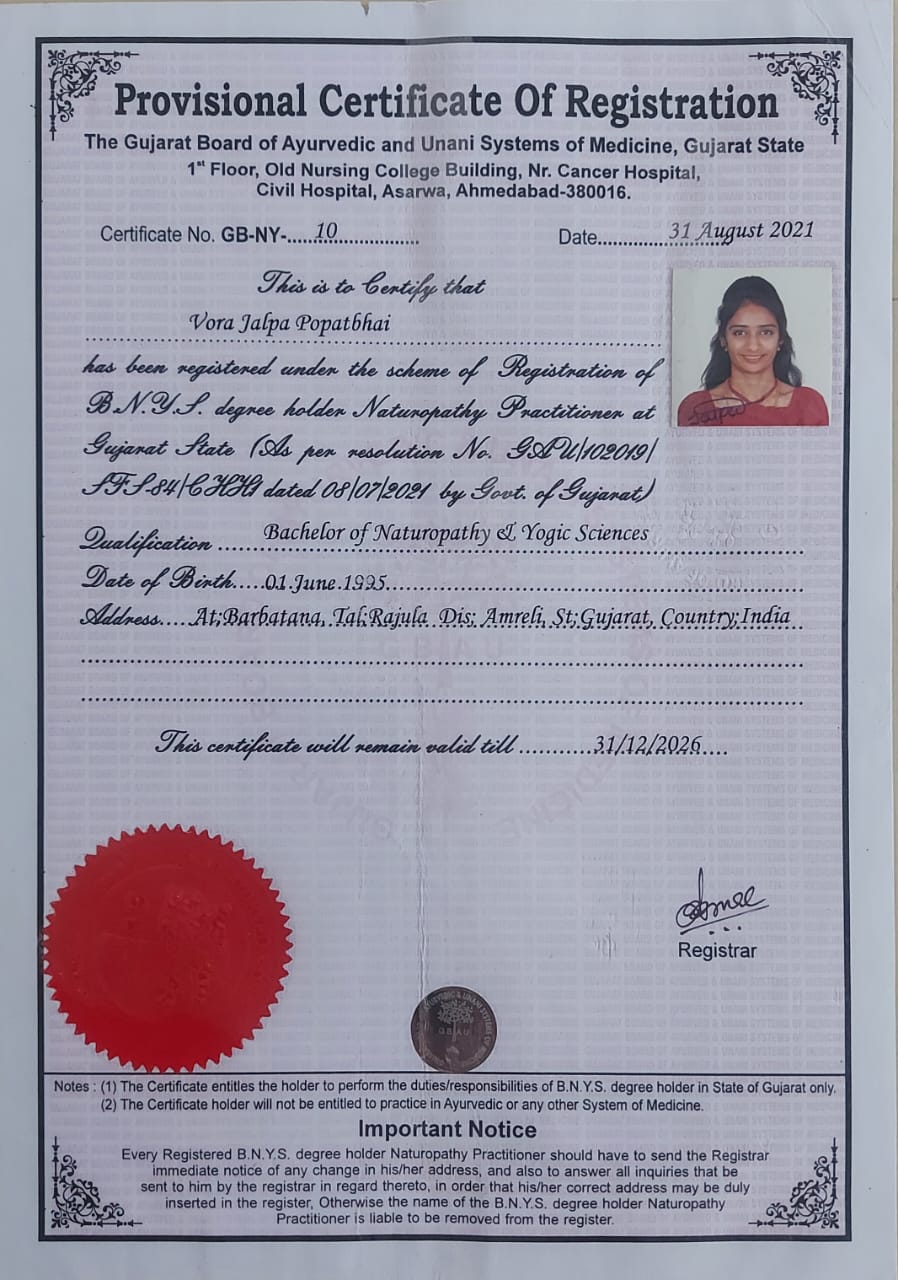 Provisional Certificate Of Registration
The Gujarat Board of Ayurvedic and Unani Systems of Medicine, Gujarat State
1st Floor, Old Nursing College Building, Nr. Cancer Hospital,
Civil Hospital, Asarwa, Ahmedabad-380016.
Certificate No. GB-NY-......10................ Date...............31 August 2021
This is to Certify that
Vora Jalpa Popatbhai
has been registered under the scheme of Registration of
B.N.Y.S. degree holder Naturopathy Practitioner at
Gujarat State (As per resolution No. GAU/102019/
SFS-84/CHH1 dated 08/07/2021 by Govt. of Gujarat)
Qualification ....... Bachelor of Naturopathy & Yogic Sciences
Date of Birth.....01.June.1995
Address.....At;Barbatana, Tal;Rajula Dis; Amreli, St;Gujarat, Country;India
This certificate will remain valid till ...........31/12/2026....
Registrar
G.B.A.U.
Notes : (1) The Certificate entitles the holder to perform the duties/responsibilities of B.N.Y.S. degree holder in State of Gujarat only.
(2) The Certificate holder will not be entitled to practice in Ayurvedic or any other System of Medicine.
Important Notice
Every Registered B.N.Y.S. degree holder Naturopathy Practitioner should have to send the Registrar
immediate notice of any change in his/her address, and also to answer all inquiries that be
sent to him by the registrar in regard thereto, in order that his/her correct address may be duly
inserted in the register, Otherwise the name of the B.N.Y.S. degree holder Naturopathy
Practitioner is liable to be removed from the register.